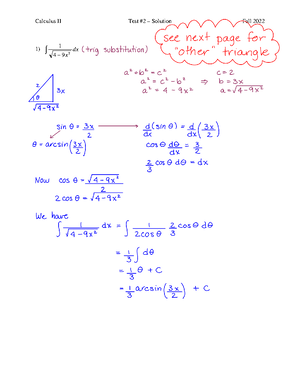 Calculus II Test #2 – Solution Fall 2022
see next page for
"other" triangle
1) ∫ 1/√(4−9x²) dx (trig substitution)
a² + b² = c² c = 2
a² = c² − b² ⇒ b = 3x
a² = 4 − 9x² a = √(4−9x²)
2 3x
θ
√(4−9x²)
sin θ = 3x/2 → d/dx (sin θ) = d/dx (3x/2)
θ = arcsin(3x/2) cos θ dθ/dx = 3/2
2/3 cos θ dθ = dx
Now cos θ = √(4−9x²)/2
2 cos θ = √(4−9x²)
We have
∫ 1/√(4−9x²) dx = ∫ 1/(2cos θ) 2/3 cos θ dθ
= 1/3 ∫ dθ
= 1/3 θ + C
= 1/3 arcsin(3x/2) + C